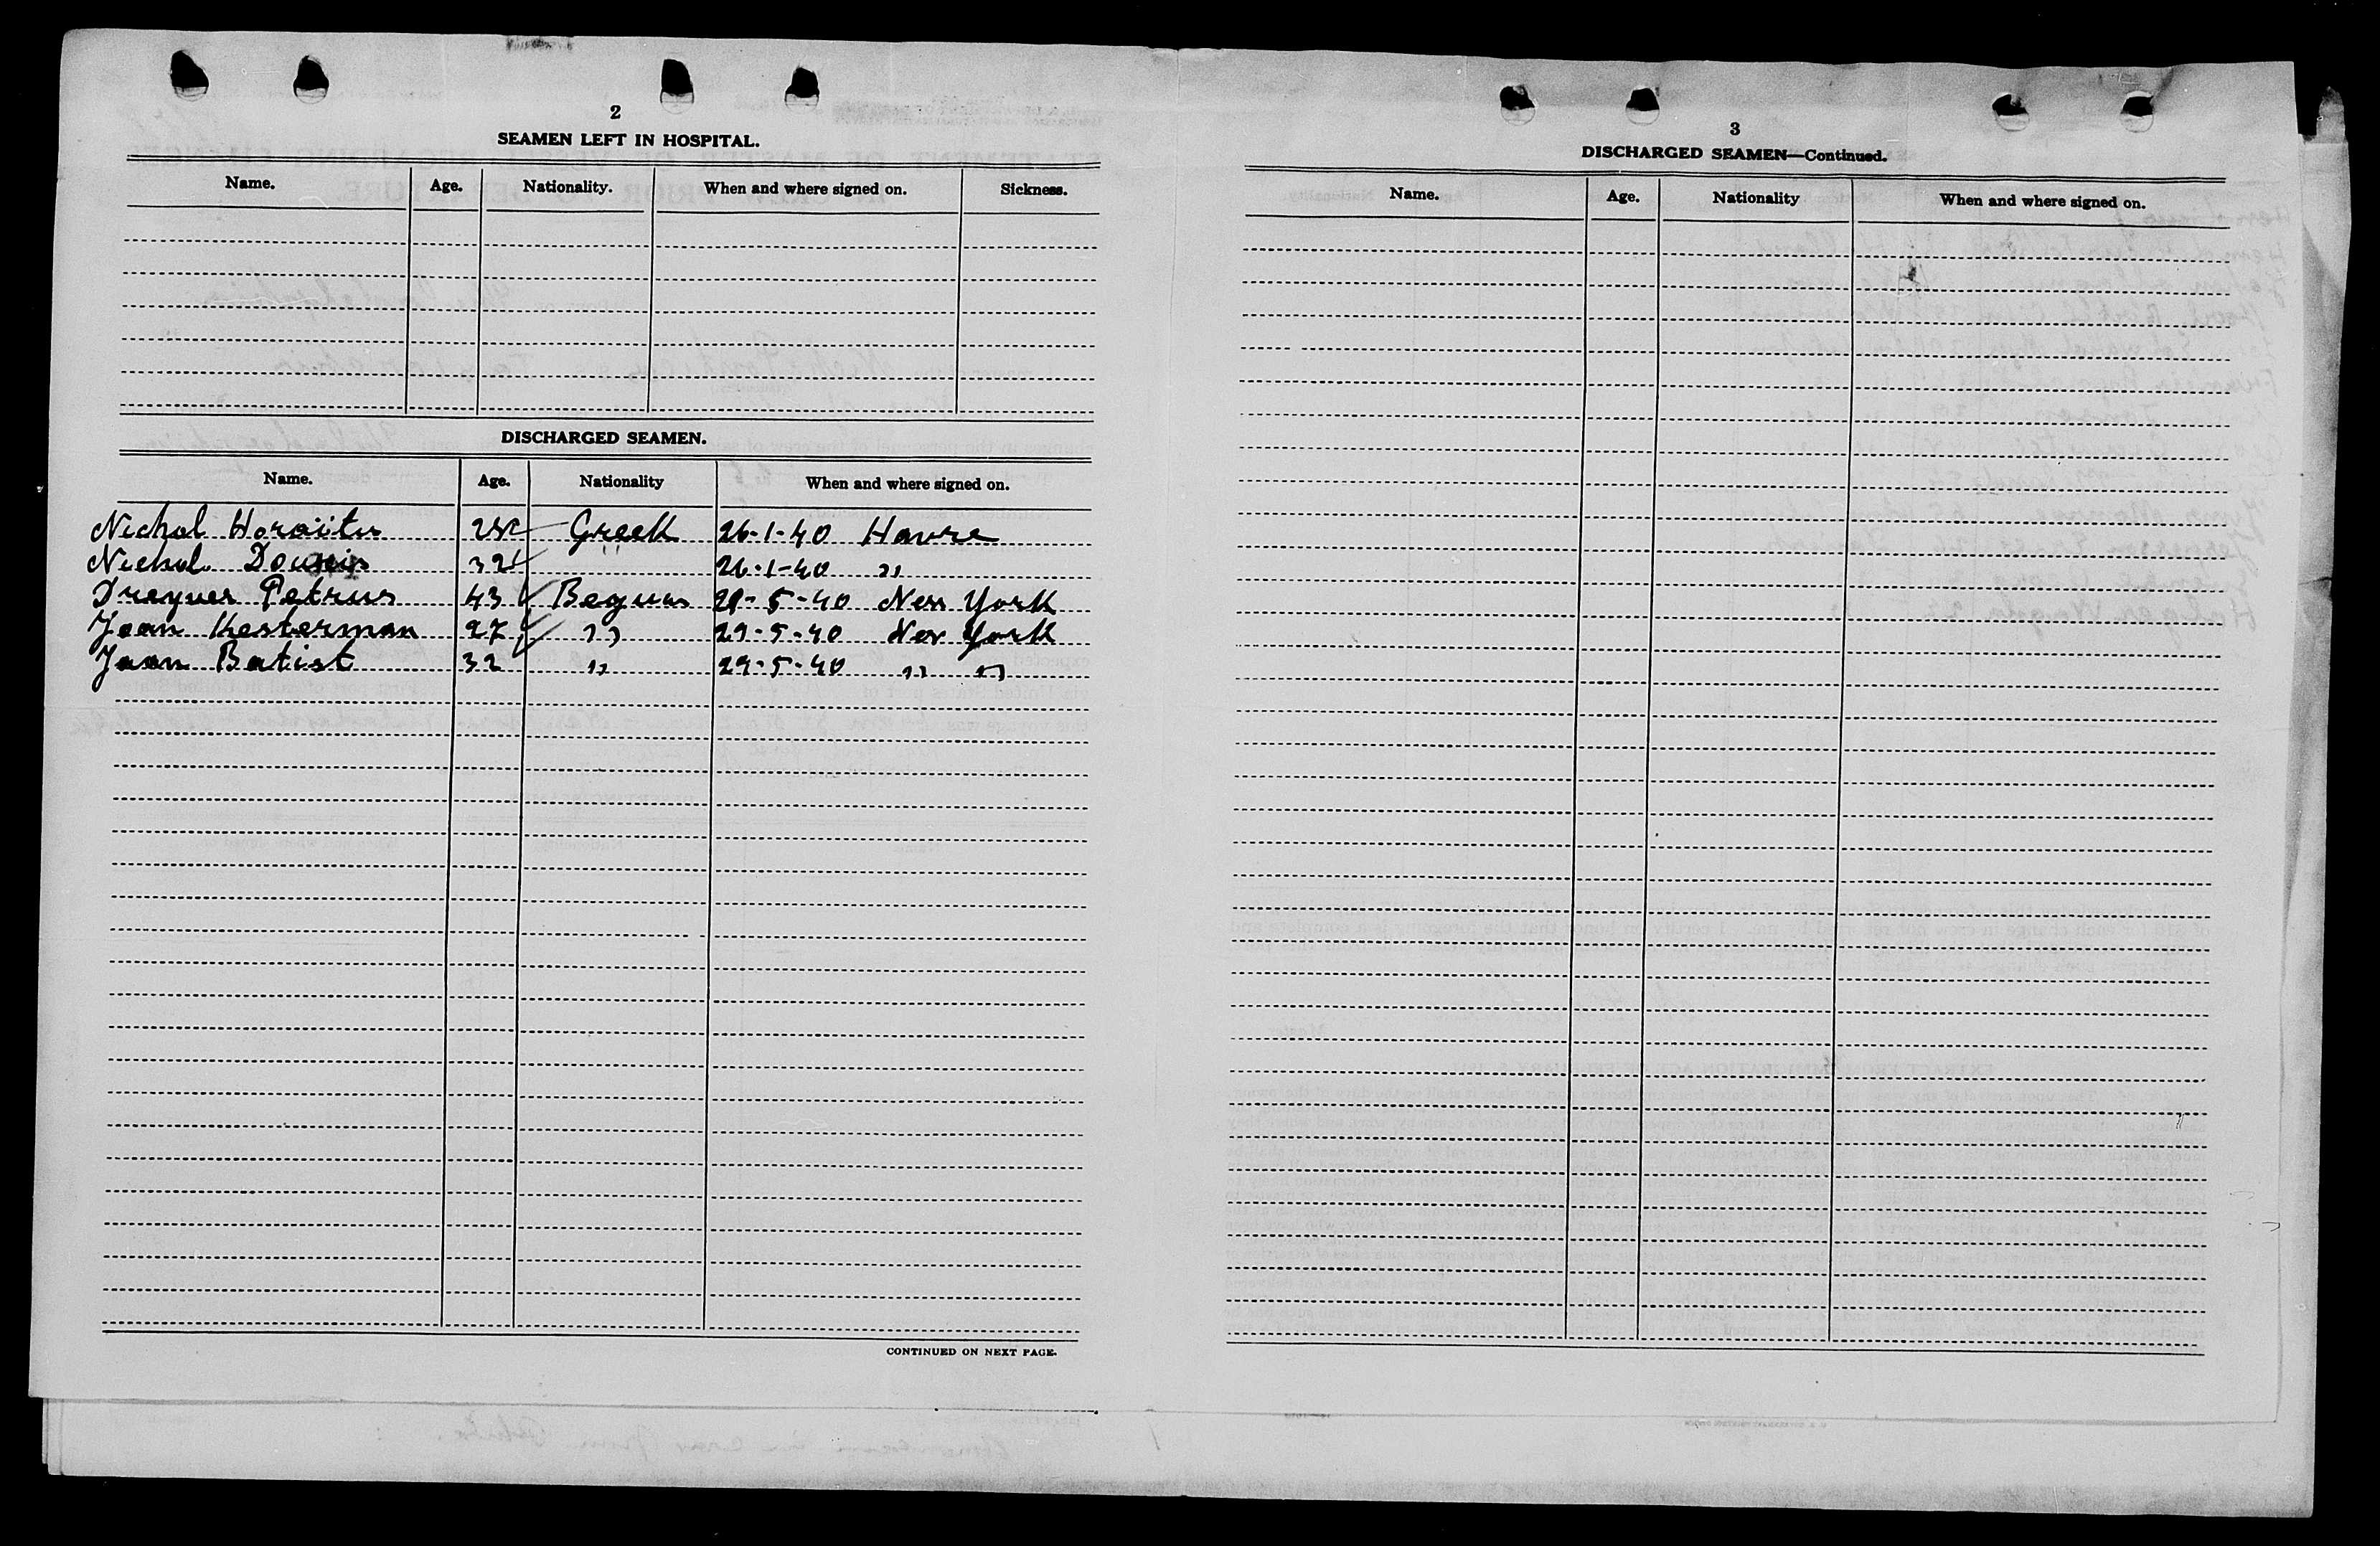 2
SEAMEN LEFT IN HOSPITAL.
Name. Age. Nationality. When and where signed on. Sickness.
DISCHARGED SEAMEN.
Name. Age. Nationality When and where signed on.
Nichol Horaitis Greek 26-1-40 Havre
Nichol 32 " 26-1-40 "
Petrus 43 29-5-40 New York
Jean Kesterman 27 " 29-5-40 New York
Jean Batist 32 " 29-5-40 " "
CONTINUED ON NEXT PAGE.
3
DISCHARGED SEAMEN—Continued.
Name. Age. Nationality When and where signed on.